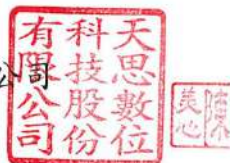 公司
天思數位
科技股份
有限公司
陳